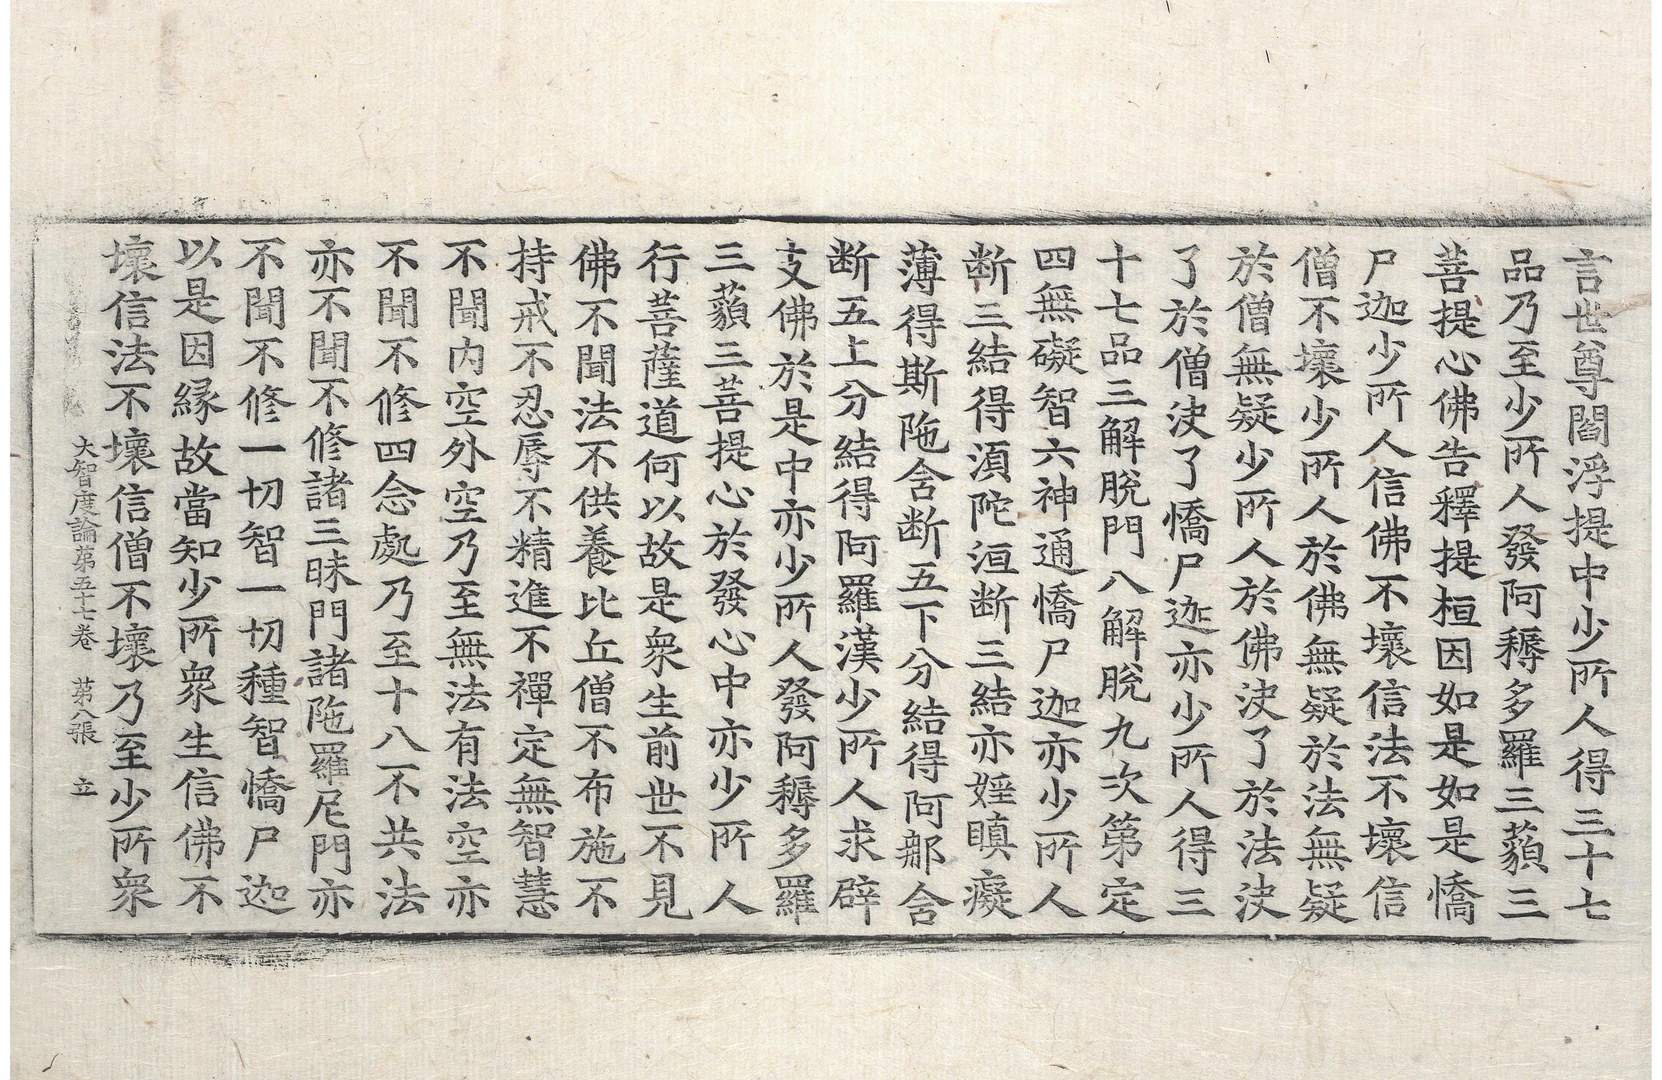 言世尊閻浮提中少所人得三十七
品乃至少所人發阿耨多羅三藐三
菩提心佛告釋提桓因如是如是憍
尸迦少所人信佛不壞信法不壞信
僧不壞少所人於佛無疑於法無疑
於僧無疑少所人於佛决了於法决
了於僧决了憍尸迦亦少所人得三
十七品三解脫門八解脫九次第定
四無礙智六神通憍尸迦亦少所人
断三結得湏陀洹断三結亦婬瞋癡
薄得斯陁含断五下分結得阿那含
断五上分結得阿羅漢少所人求辟
支佛於是中亦少所人發阿耨多羅
三藐三菩提心於發心中亦少所人
行菩薩道何以故是衆生前世不見
佛不聞法不供養比丘僧不布施不
持戒不忍辱不精進不禪定無智慧
不聞內空外空乃至無法有法空亦
不聞不修四念處乃至十八不共法
亦不聞不修諸三昧門諸陁羅尼門亦
不聞不修一切智一切種智憍尸迦
以是因縁故當知少所衆生信佛不
壞信法不壞信僧不壞乃至少所衆
大智度論第五十七卷 第八張 立